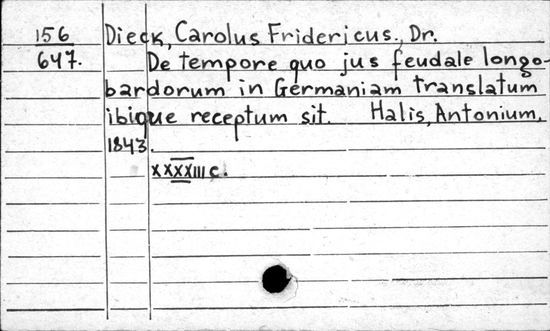 156 Dieck, Carolus Fridericus., Dr.
647. De tempore quo jus feudale longo-
bardorum in Germaniam translatum
ibique receptum sit. Halis, Antonium,
1843.
XXXXIII c.